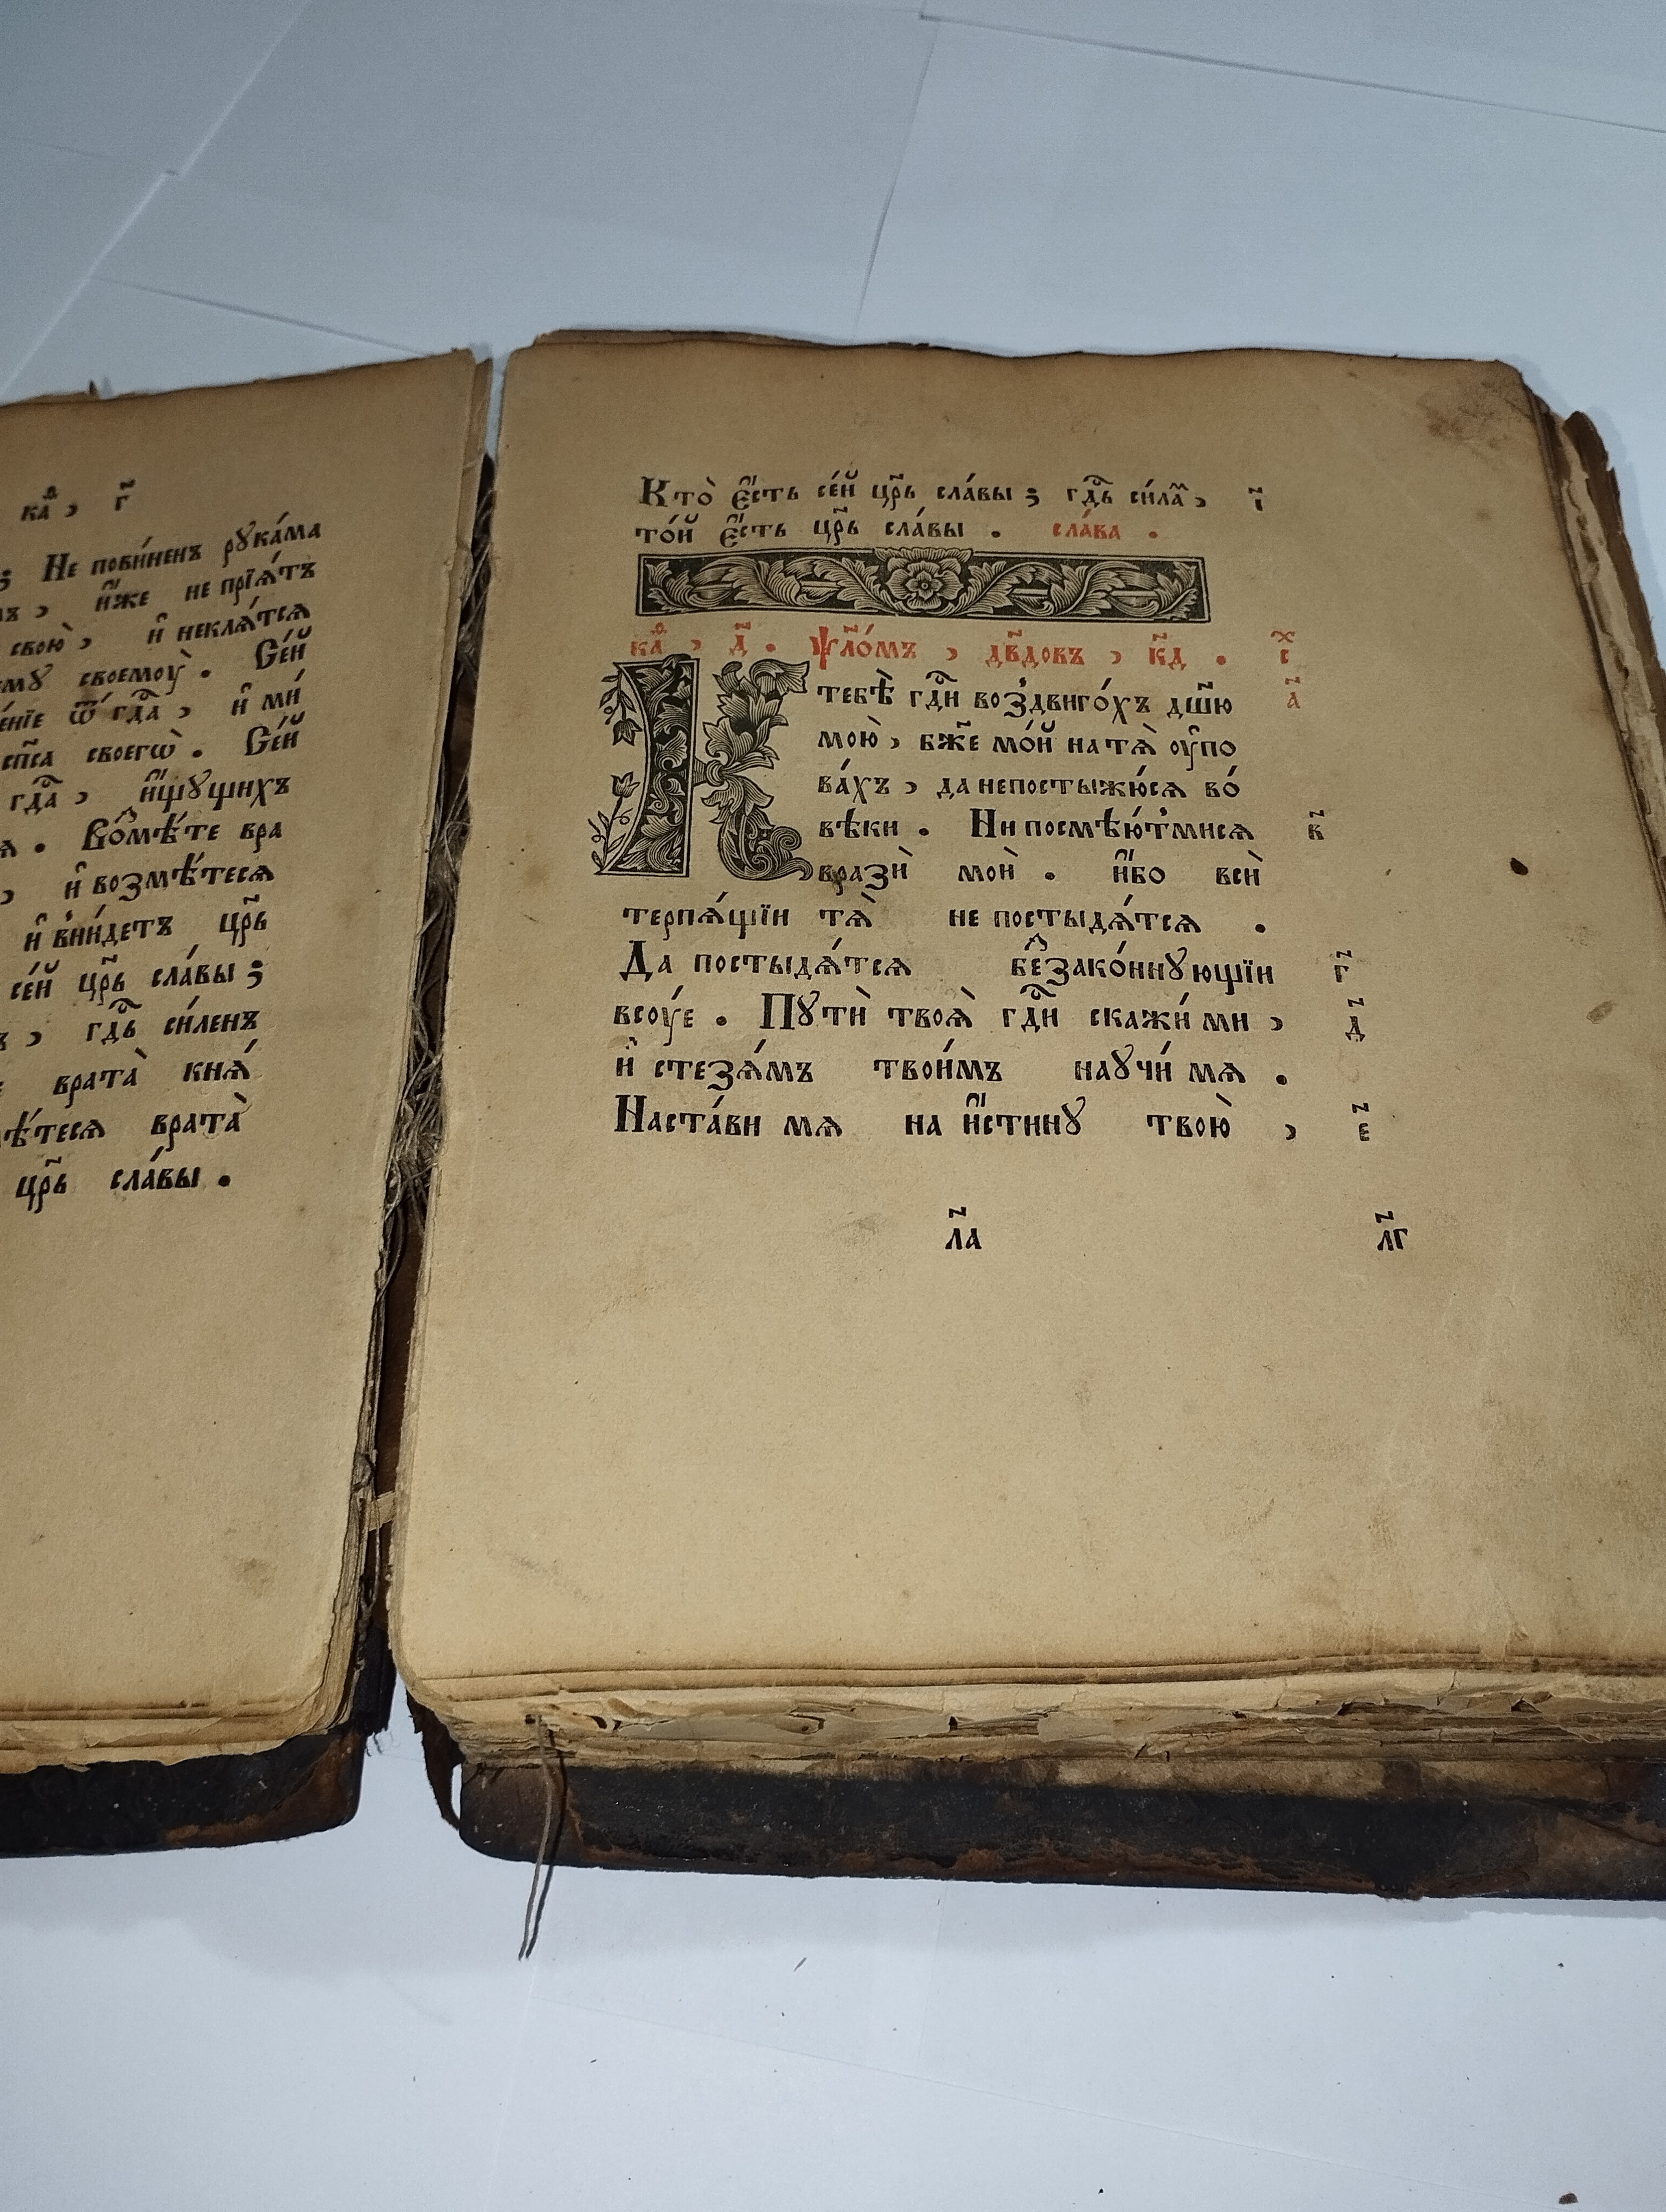 каѳ , г҃
; Не пови́ненъ рꙋка́ма
и҆́же не прїѧ́тъ
свою̀ , и҆ неклѧ́тсѧ
своемоу̀ . Се́й
ѿ гдⷭ҇а , и҆ ми́
сп҃са своегѡ̀ . Се́й
гдⷭ҇а , и҆́щꙋщихъ
. Возмѣ́те вра
, и҆ возмѣ́тесѧ
и҆ вни́детъ цр҃ь
се́й цр҃ь сла́вы ;
, гдⷭ҇ь си́ленъ
врата̀ кнѧ́
врата̀
цр҃ь сла́вы .
Кто̀ є҆́сть се́й цр҃ь сла́вы ; гдⷭ҇ь си́лаⷨ , і҃
то́й є҆́сть цр҃ь сла́вы . сла́ва .
каѳ , д҃ . ѱл҃о́мъ , дв҃довъ , к҃д . с
К тебѣ̀ гдⷭ҇и воздвиго́хъ дш҃ю а҃
мою̀ , бж҃е мо́й на тѧ̀ оу҆пο
ва́хъ , да непостыжю́сѧ во́
вѣки . Ни посмѣю́тмисѧ в҃
вразѝ моѝ . и҆́бо всѝ
терпѧ́щїи тѧ̀ не постыдѧ́тсѧ .
Да постыдѧ́тсѧ беззако́ннꙋющїи г҃
всоу́е . Пꙋтѝ твоѧ̀ гдⷭ҇и скажи́ ми , д҃
и҆ стезѧ́мъ твои́мъ наꙋчи́ мѧ .
Наста́ви мѧ на и҆́стинꙋ твою̀ , е҃
л҃а л҃г